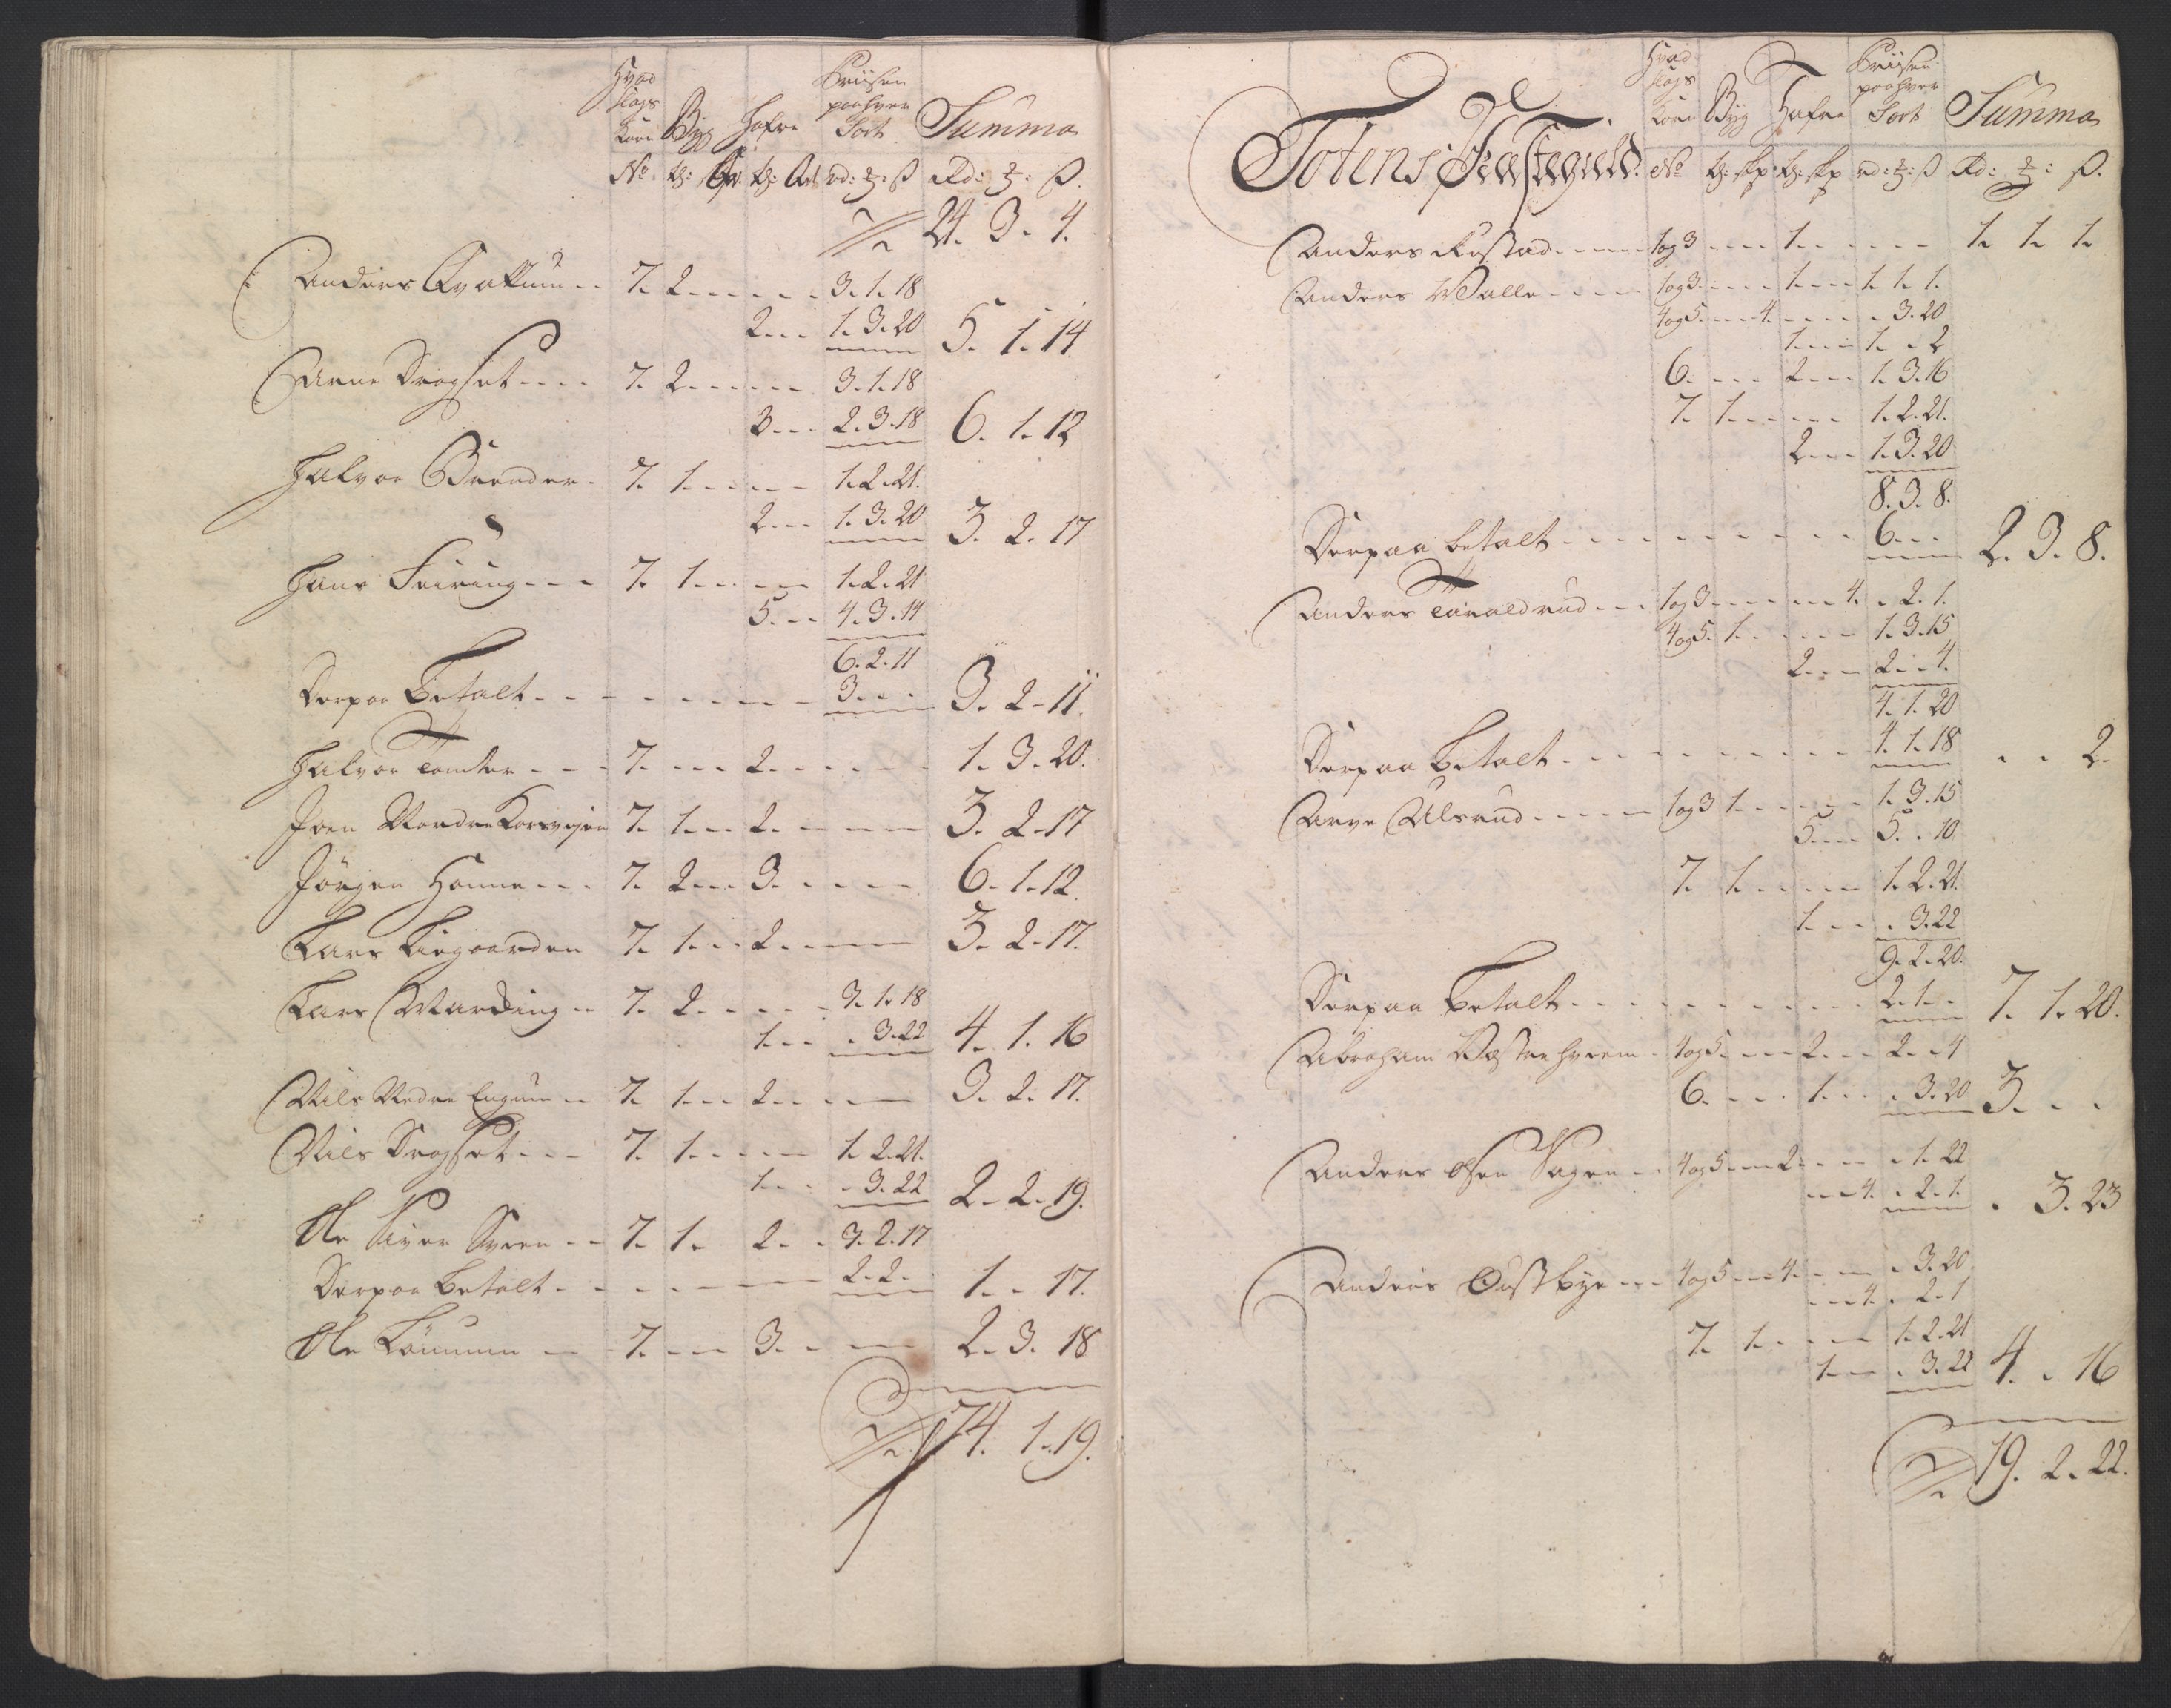 Hvad slags Korn Byg Hafre Priisen paa hver Sort Summa
No td: td: rd: ß Rd: ß.
24. 3. 4.
Anders Qvattum 7. 2 3. 1. 18
2 1. 3. 20 5. 1. 14
Arne Dragset 7. 2 3. 1. 18
3 2. 3. 18 6. 1. 12
Halvor 7. 1 1. 2. 21.
2 1. 3. 20 3. 2. 17
Hans Feiring 7. 1 1. 2. 21
5 4. 3. 14
6. 2. 11
Derpaa Betalt 3 3. 2. 11.
Halvor Tomter 7. 2 1. 3. 20.
Joen Nordre Korsvejen 7. 1 2 3. 2. 17
Jörgen Honne 7. 2 3 6. 1. 12
Lars Liegaarden 7. 1 2 3. 2. 17.
Lars 7. 2 3. 1. 18
1 . 3. 22 4. 1. 16
Nils Nedre Engum 7. 1 2 3. 2. 17.
Nils Dragset 7. 1 1. 2. 21.
1 . 3. 22 2. 2. 19.
Ole Sveen 7. 1 2 3. 2. 17
Derpaa Betalt 2. 2. 1. . 17.
Ole Lönnum 7. 3 2. 3. 18
74. 1. 19.
Totens Præstegield. Hvad slags Korn Byg Hafre Priisen paa hver Sort Summa
No td: skp td: skp rd: ß Rd: ß.
Anders Rustad 1 og 3 1 1. 1. 1.
Anders Walle 1 og 3 1 1. 1. 1.
4 og 5 4 . 3. 20
1 1. . 2
6. 2 1. 3. 16
7. 1 1. 2. 21.
2 1. 3. 20
8. 3. 8.
Derpaa betalt 6 2. 3. 8.
Anders Taraldrud 1 og 3 4. . 2. 1.
4 og 5. 1 1. 3. 15
2 2. . 4.
4. 1. 20
Derpaa Betalt 4. 1. 18 . . 2.
Arve Ulsrud 1 og 3 1 1. 3. 15
5 5. . 10
7. 1 1. 2. 21.
1 . 3. 22
9. 2. 20.
Derpaa Betalt 2. 1. . 7. 1. 20.
Abraham 4 og 5. 2 2. . 4
6. 1 . 3. 20 3. . .
Anders Olsen Hagen 4 og 5 2 . 1. 22
4. . 2. 1. . 3. 23
Anders Østbye 4 og 5 4. . 3. 20
4. . 2. 1
7. 1 1. 2. 21
1 . 3. 22 4. . 16
19. 2. 22.